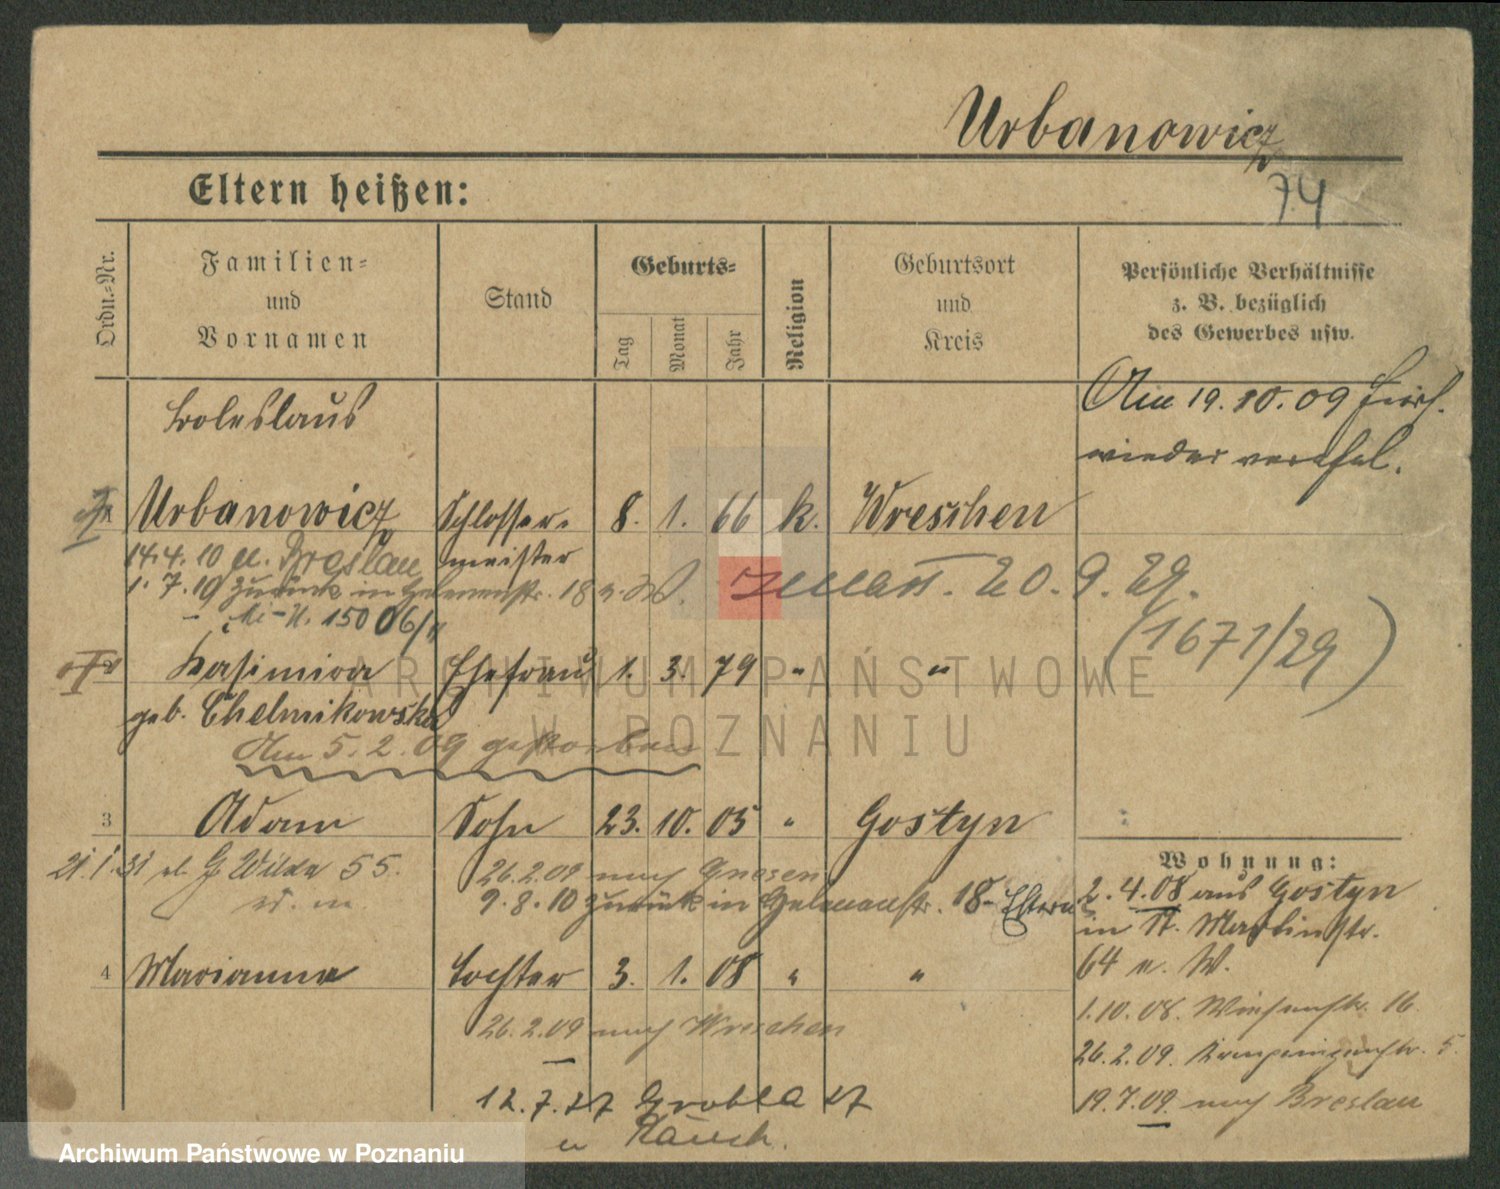 Urbanowicz
74
Eltern heißen:
Ordn.-Nr.
Familien-
und
Vornamen
Stand
Geburts-
Tag
Monat
Jahr
Religion
Geburtsort
und
Kreis
Persönliche Verhältnisse
z. B. bezüglich
des Gewerbes usw.
Boleslaus
Am 19.10.09
wieder
Urbanowicz Schlosser- 8. 1. 66 k. Wreschen
meister
14.4.10 Breslau
1.7.10 zurück in 18
zmarł. 20.9.29.
15006/11
(1671/29)
Kasimira Ehefrau 1. 3. 79 " "
geb. Chelmikowska
Am 5.2.09 gestorben
3 Adam Sohn 23. 10. 05 " Gostyn
21.1.31 G. Wilda 55.
26.2.09 nach Gnesen
9.8.10 zurück in 18 Eltern
4 Marianna Tochter 3. 1. 08 " "
26.2.09 nach Wreschen
12.7.27 Grobla 27
u Rauch.
Wohnung:
2.4.08 aus Gostyn
in St. Martinstr.
64 n. W.
1.10.08. Wiesenstr. 16
26.2.09. 5.
19.7.09. nach Breslau
ARCHIWUM PAŃSTWOWE
W POZNANIU
Archiwum Państwowe w Poznaniu